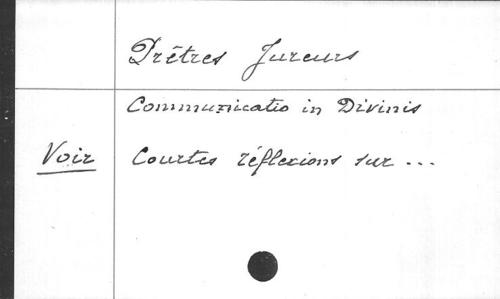 Prêtres Jureurs
Communicatio in Divinis
Voir Courtes réflexions sur ...